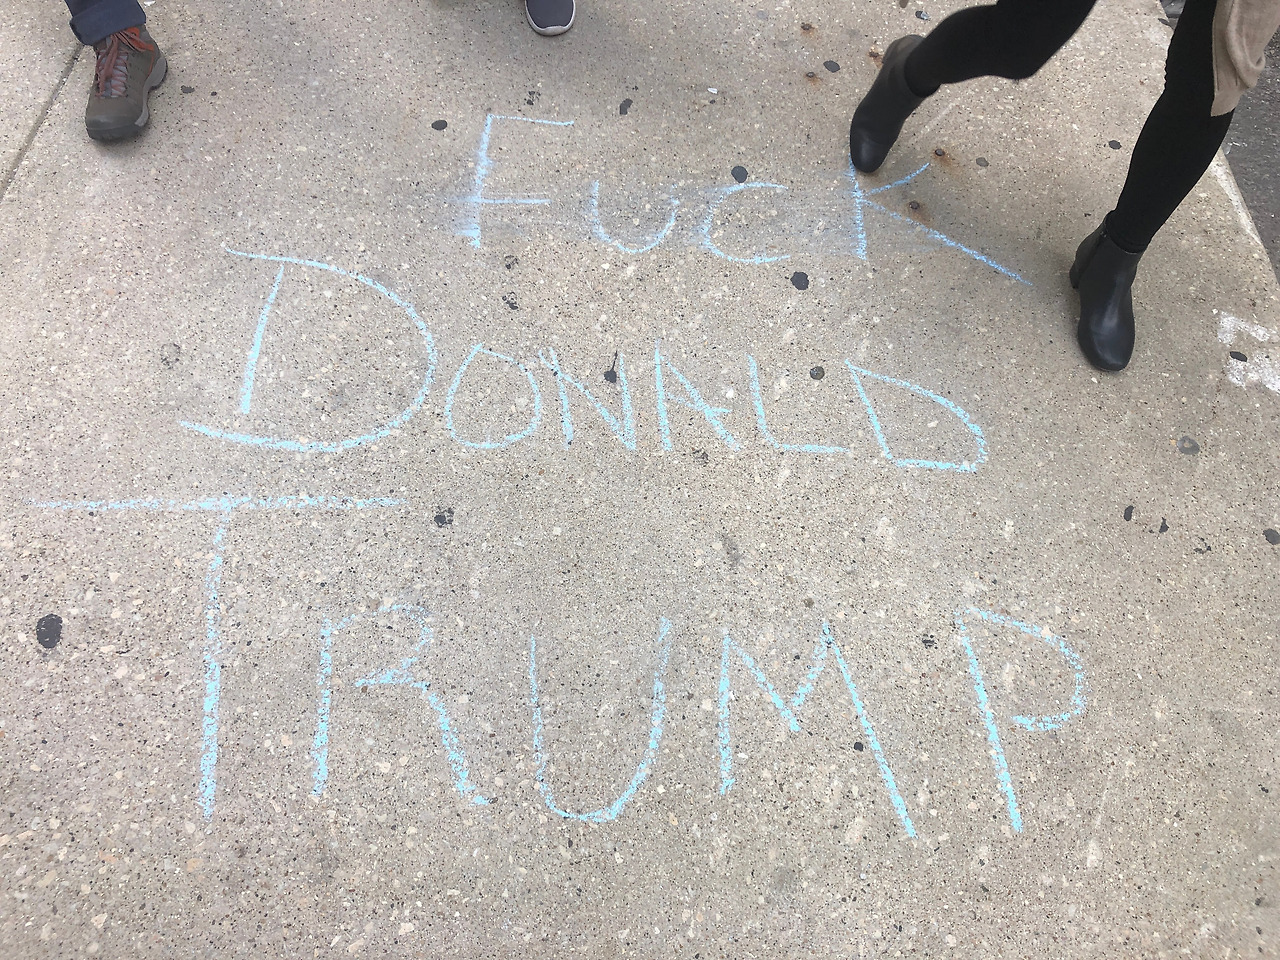 FUCK
DONALD
TRUMP